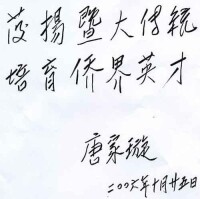 发揚暨大传統
培育侨界英才
唐家璇
二〇〇六年十月廿五日